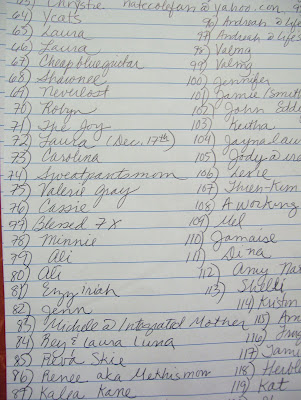 63) Chrystie natecolefan@yahoo.com
64) Ycats
65) Laura
66) Laura
67) Cheapblueguitar
68) Shawnee
69) Neverlost
70) Robyn
71) The Joy
72) Laura (Dec. 17th)
73) Carolina
74) Sweatpantsmom
75) Valerie Gray
76) Cassie
77) Blessed 7X
78) Minnie
79) Ali
80) Ali
81)
82) Jenn
83) Michele @ Integrated Mother
84) Bey & Laura Luna
85) Reva Skie
86) Renee aka Methismom
87) Kalea Kane
96) Andreah @
97) Andreah @
98) Valma
99) Valma
100) Jennifer
101) Jamie
102) John
103) Keitha
104)
105) Jody @
106) Lexie
107) Thien-Kim
108) A Working
109) Mel
110) Jamaise
111) Dina
112) Amy
113) Shelli
114) Kristin
115)
116)
117)
118)
119) Kat